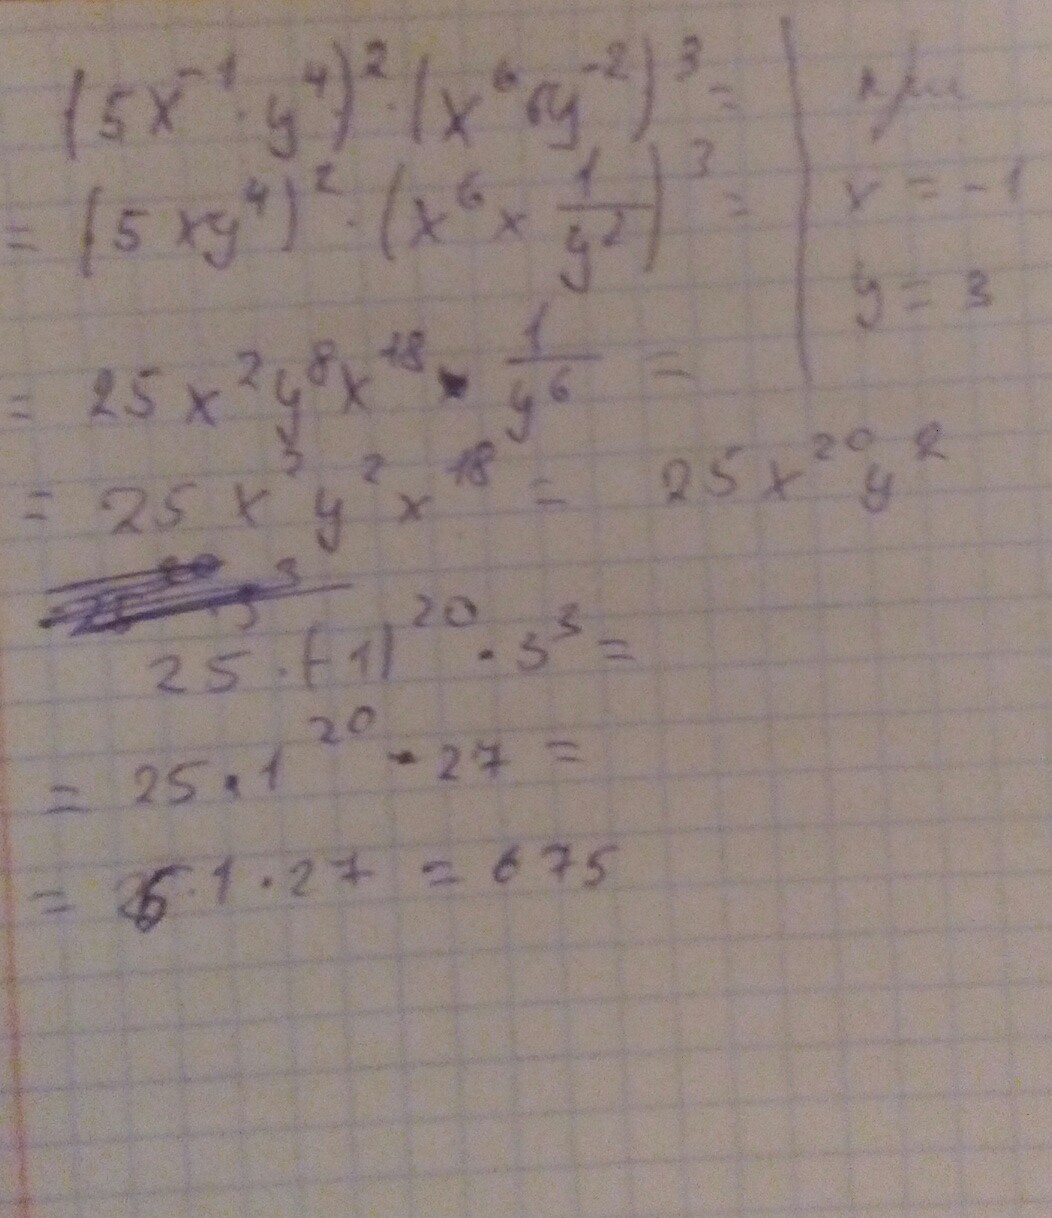 (5x⁻¹·y⁴)²·(x⁶y⁻²)³= при
= (5xy⁴)²·(x⁶× 1/y²)³ = x = -1
y = 3
= 25x²y⁸x¹⁸· 1/y⁶ =
= 25x²y²x¹⁸ = 25x²⁰y²
25·(-1)²⁰·3³=
= 25·1²⁰·27 =
= 25·1·27 = 675